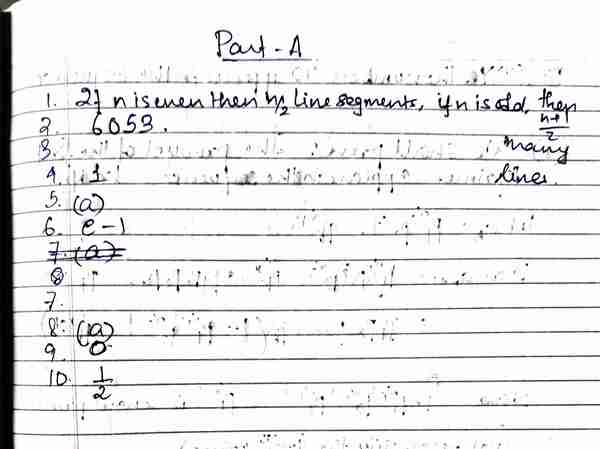 Part - A
1. If n is even then n/2 line segments, if n is odd, then n+1/2 many lines.
2. 6053.
3.
4. 1
5. (a)
6. e - 1
7. (a)
8
7.
8. (a)
9. 0
10. 1/2